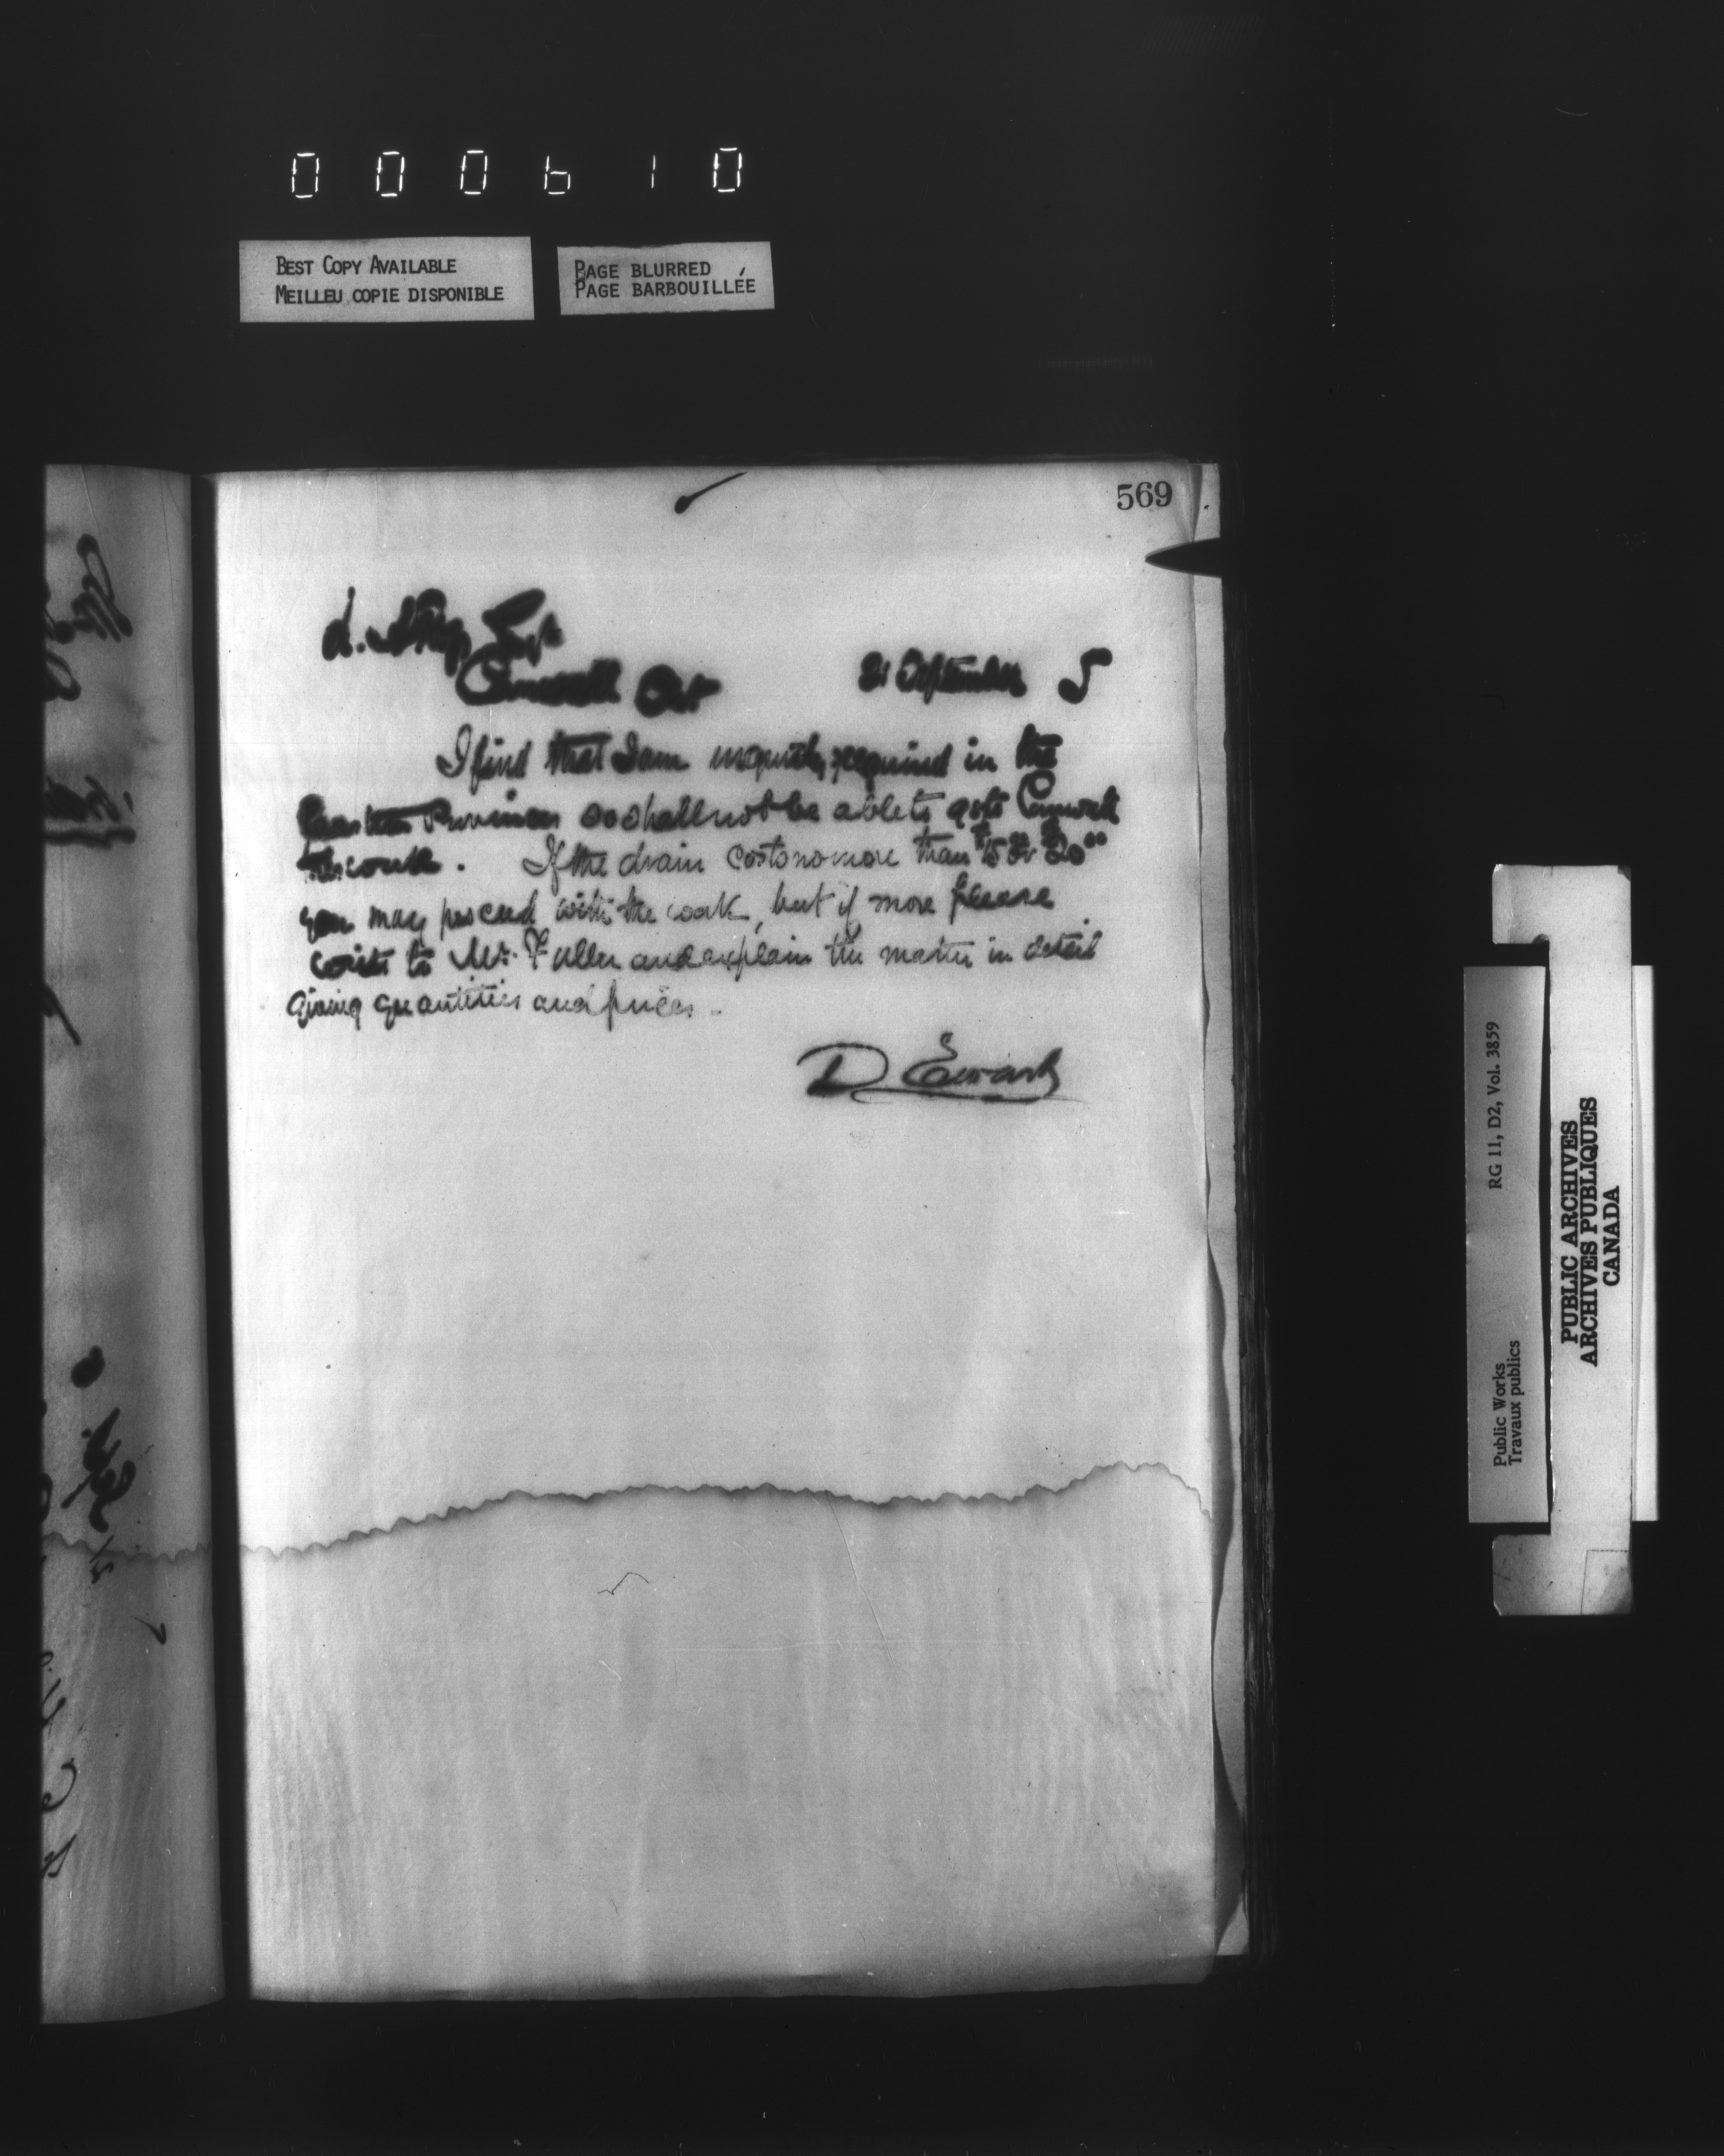 000610
BEST COPY AVAILABLE
MEILLEU COPIE DISPONIBLE
PAGE BLURRED
PAGE BARBOUILLÉE
569
Cornwall Ont
21 September 5
I find that I am urgently required in the
Eastern Provinces so shall not be able to go to Cornwall
this week. If the drain costs no more than $15 or $20⁰⁰
you may proceed with the work, but if more please
write to Mr. Fuller and explain the matter in detail
giving quantities and prices.
D Ewart
RG 11, D2, Vol. 3859
Public Works
Travaux publics
PUBLIC ARCHIVES
ARCHIVES PUBLIQUES
CANADA